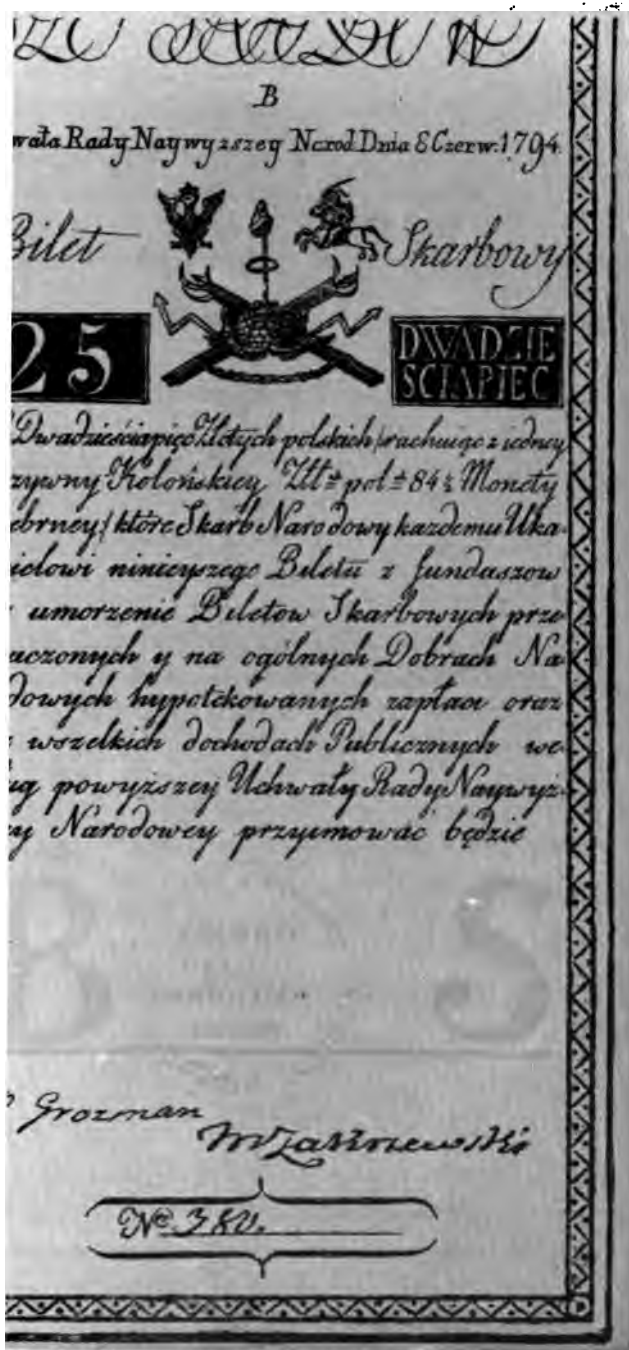 B
wała Rady Naywyzszey Narod Dnia 8 Czerw: 1794.
Bilet Skarbowy
25 DWADZIE
SCIAPIEC
Dwadzieściapięć Złotych polskich / rachuiąc z iedney
zywny Kolońskiey Złł: pol: 84½ Monety
ebrney / które Skarb Narodowy kazdemu Uka-
icielowi ninieyszego Biletu z funduszow
umorzenie Biletow Skarbowych prze
aczonych y na ogólnych Dobrach Na
dowych hypotekowanych zapłaci oraz
wszelkich dochodach Publicznych we-
ug powyższey Uchwały Rady Naywyż-
ey Narodowey przyimować będzie
B S
Grozman
MZakrzewski
No 3 KU.